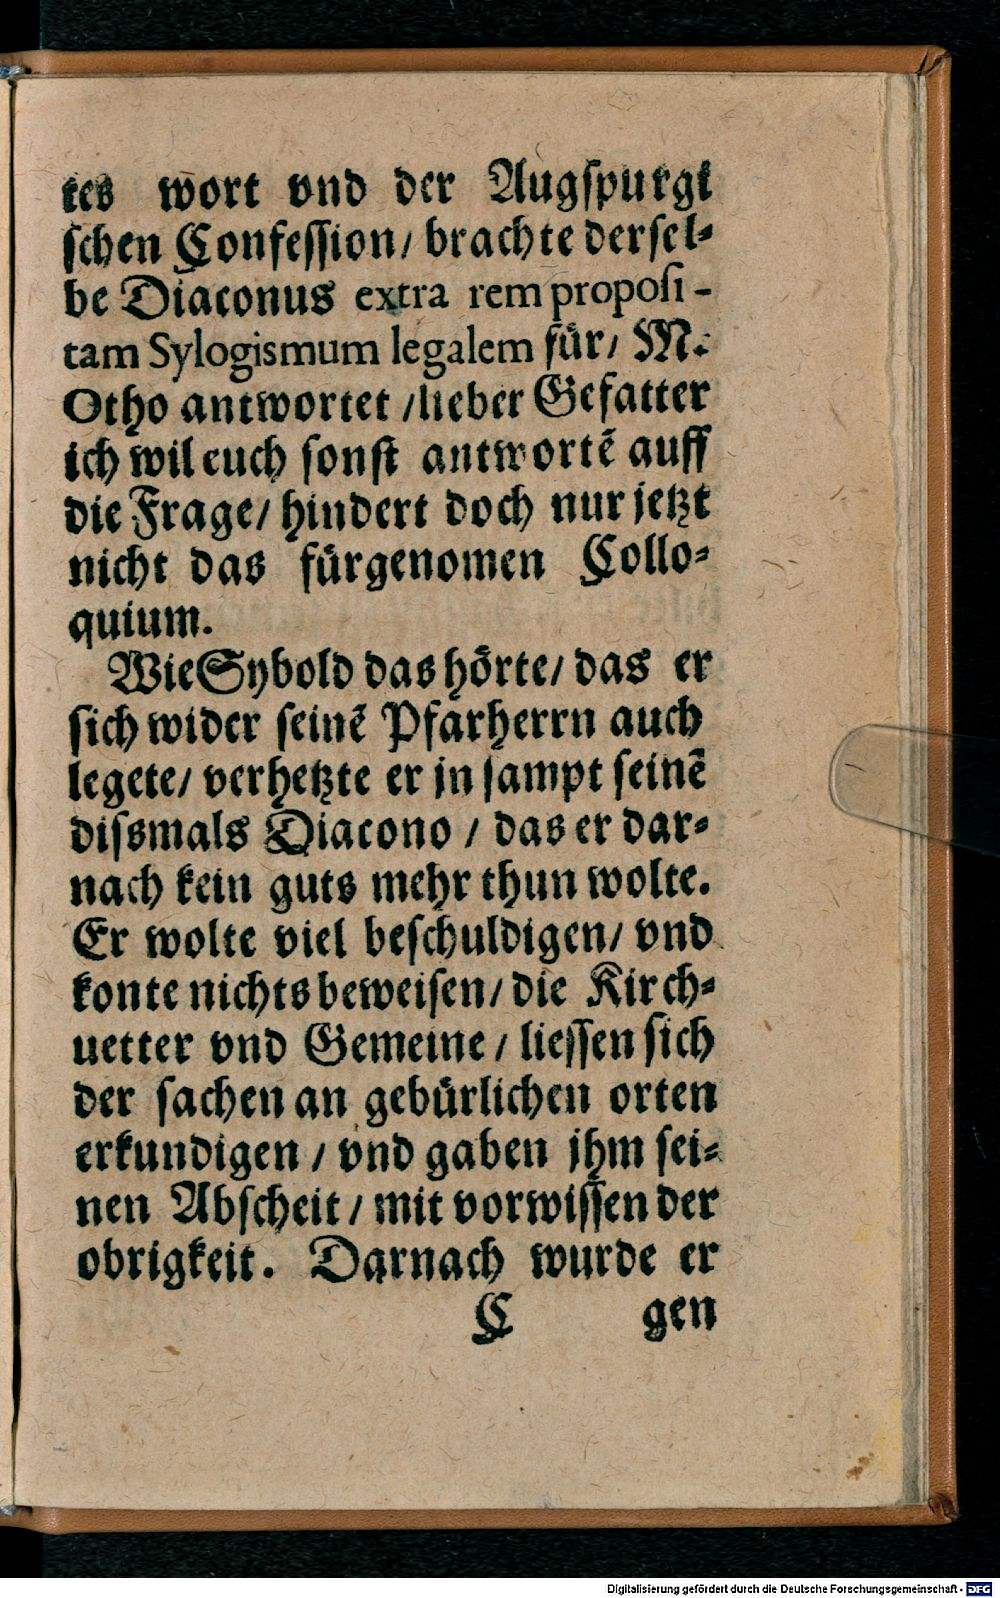 tes wort vnd der Augspurgi
schen Confession/ brachte dersel⸗
be Diaconus extra rem proposi-
tam Sylogismum legalem für/ M.
Otho antwortet /lieber Gefatter
ich wil euch sonst antwortē auff
die Frage/ hindert doch nur jetzt
nicht das fürgenomen Collo⸗
quium.
Wie Sybold das hörte/ das er
sich wider seinē Pfarherrn auch
legete/ verhetzte er jn sampt seinē
dissmals Diacono / das er dar⸗
nach kein guts mehr thun wolte.
Er wolte viel beschuldigen/ vnd
konte nichts beweisen/ die Kirch⸗
uetter vnd Gemeine / liessen sich
der sachen an gebürlichen orten
erkundigen / vnd gaben jhm sei⸗
nen Abscheit / mit vorwissen der
obrigkeit. Darnach wurde er
C gen
Digitalisierung gefördert durch die Deutsche Forschungsgemeinschaft - DFG